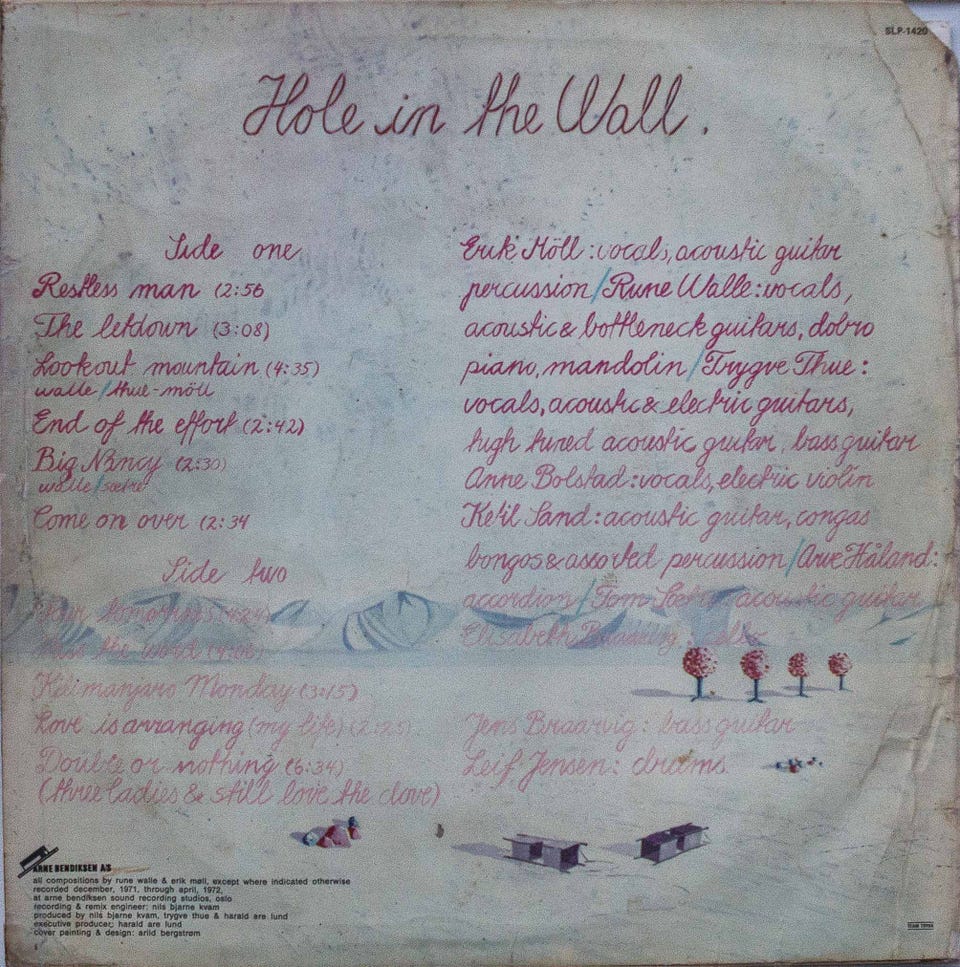 SLP-1420
Hole in the Wall.
Side one
Restless man (2:56
The letdown (3:08)
Lookout mountain (4:35)
walle/thue-möll
End of the effort (2:42)
Big Nancy (2:30)
walle/
Come on over (2:34
Side two
tomorrows (4:24)
the word (4:06)
Kilimanjaro Monday (3:15)
Love is arranging (my life) (2:25).
Double or nothing (6:34)
(three ladies & still love the dove)
Erik Möll: vocals, acoustic guitar
percussion/Rune Walle: vocals,
acoustic & bottleneck guitars, dobro
piano, mandolin/Trygve Thue:
vocals, acoustic & electric guitars,
high tuned acoustic guitar, bass guitar
Anne Bolstad: vocals, electric violin
Ketil Sand: acoustic guitar, congas
bongos & assorted percussion/Arve Håland:
accordion/Tom acoustic guitar
Elisabeth
Jens Braarvig: bass guitar
Leif Jensen: drums
ARNE BENDIKSEN A/S
all compositions by rune walle & erik møll, except where indicated otherwise
recorded december, 1971, through april, 1972,
at arne bendiksen sound recording studios, oslo
recording & remix engineer: nils bjarne kvam
produced by nils bjarne kvam, trygve thue & harald are lund
executive producer; harald are lund
cover painting & design: arild bergstrøm